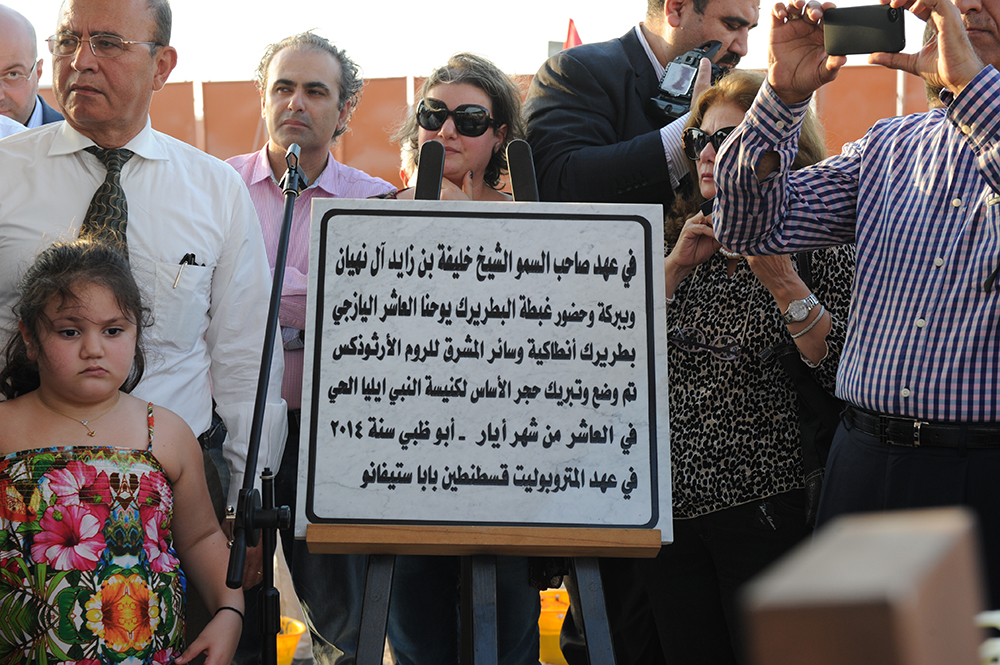 في عهد صاحب السمو الشيخ خليفة بن زايد آل نهيان
وببركة وحضور غبطة البطريرك يوحنا العاشر اليازجي
بطريرك أنطاكية وسائر المشرق للروم الأرثوذكس
تم وضع وتبريك حجر الأساس لكنيسة النبي ايليا الحي
في العاشر من شهر أيار - أبو ظبي سنة ٢٠١٤
في عهد المتروبوليت قسطنطين بابا ستيفانو